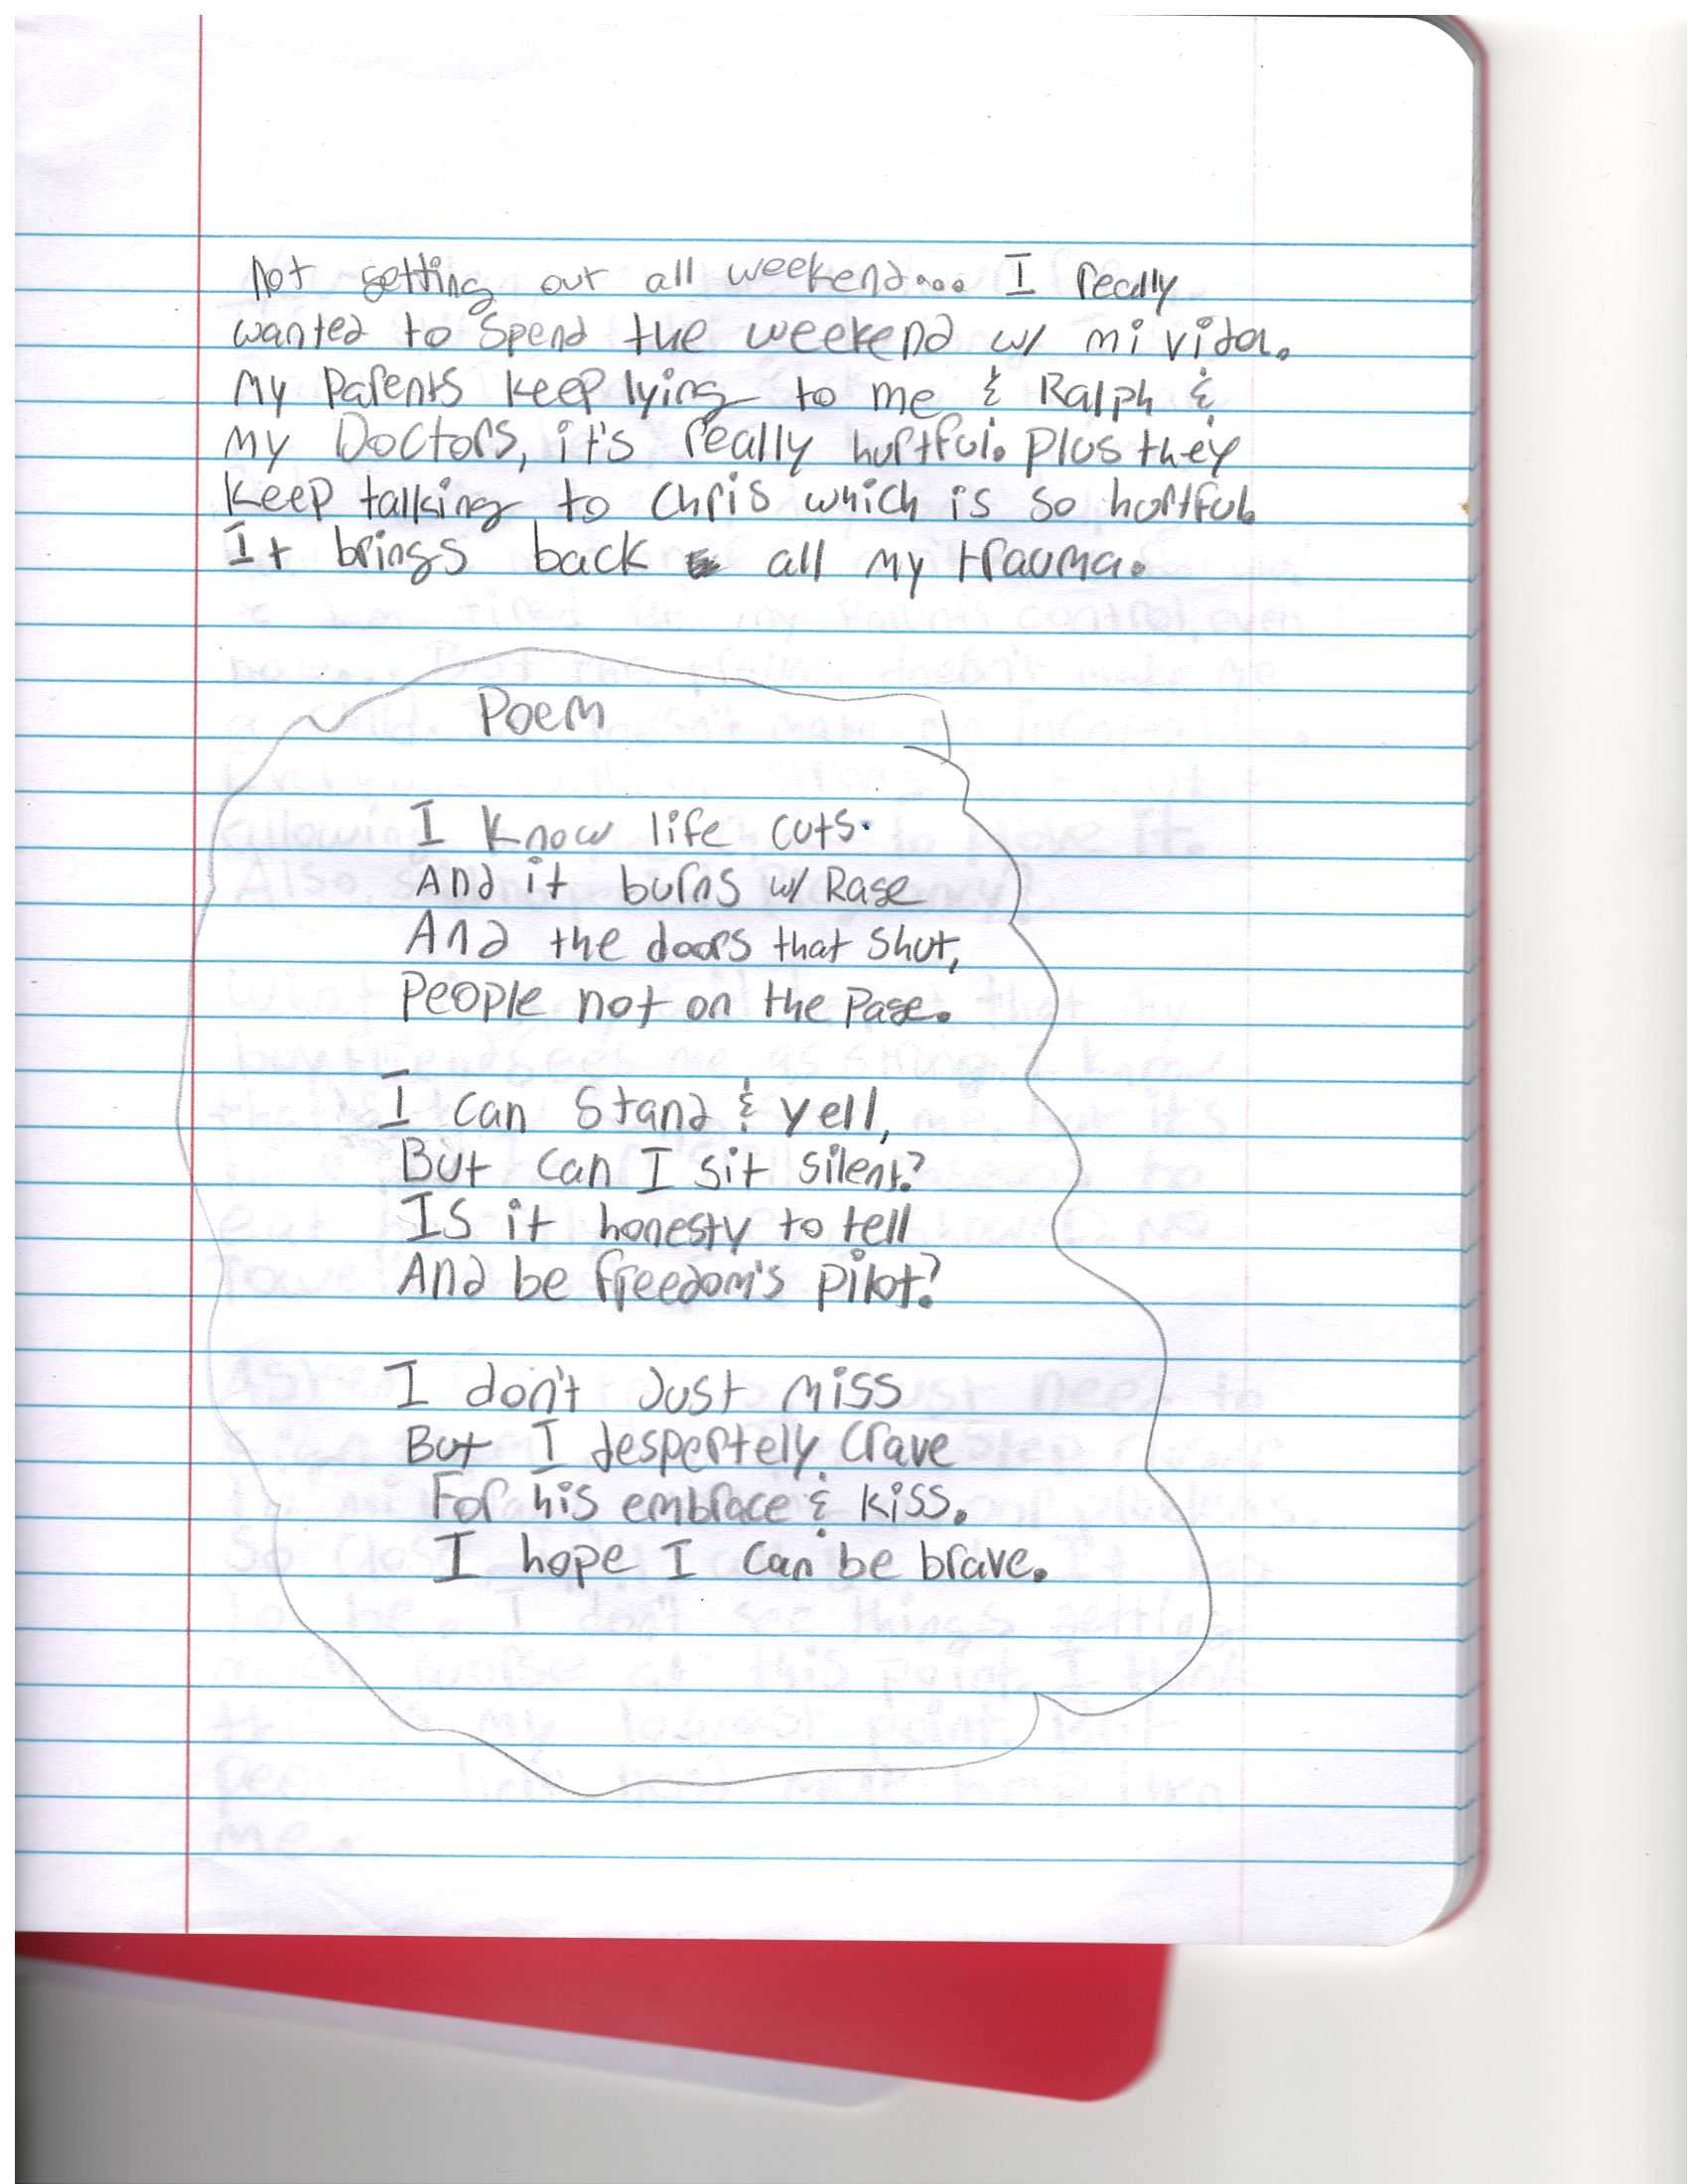 not getting out all weekend... I really
wanted to spend the weekend w/ mi vida.
My Parents keep lying to me & Ralph &
my Doctors, it's really hurtful. Plus they
keep talking to Chris which is so hurtful.
It brings back all my trauma.
Poem
I know life cuts.
And it burns w/ Rage
And the doors that shut,
People not on the Page.
I can stand & yell,
But can I sit silent?
Is it honesty to tell
And be freedom's pilot?
I don't Just miss
But I despertely crave
For his embrace & kiss.
I hope I can be brave.